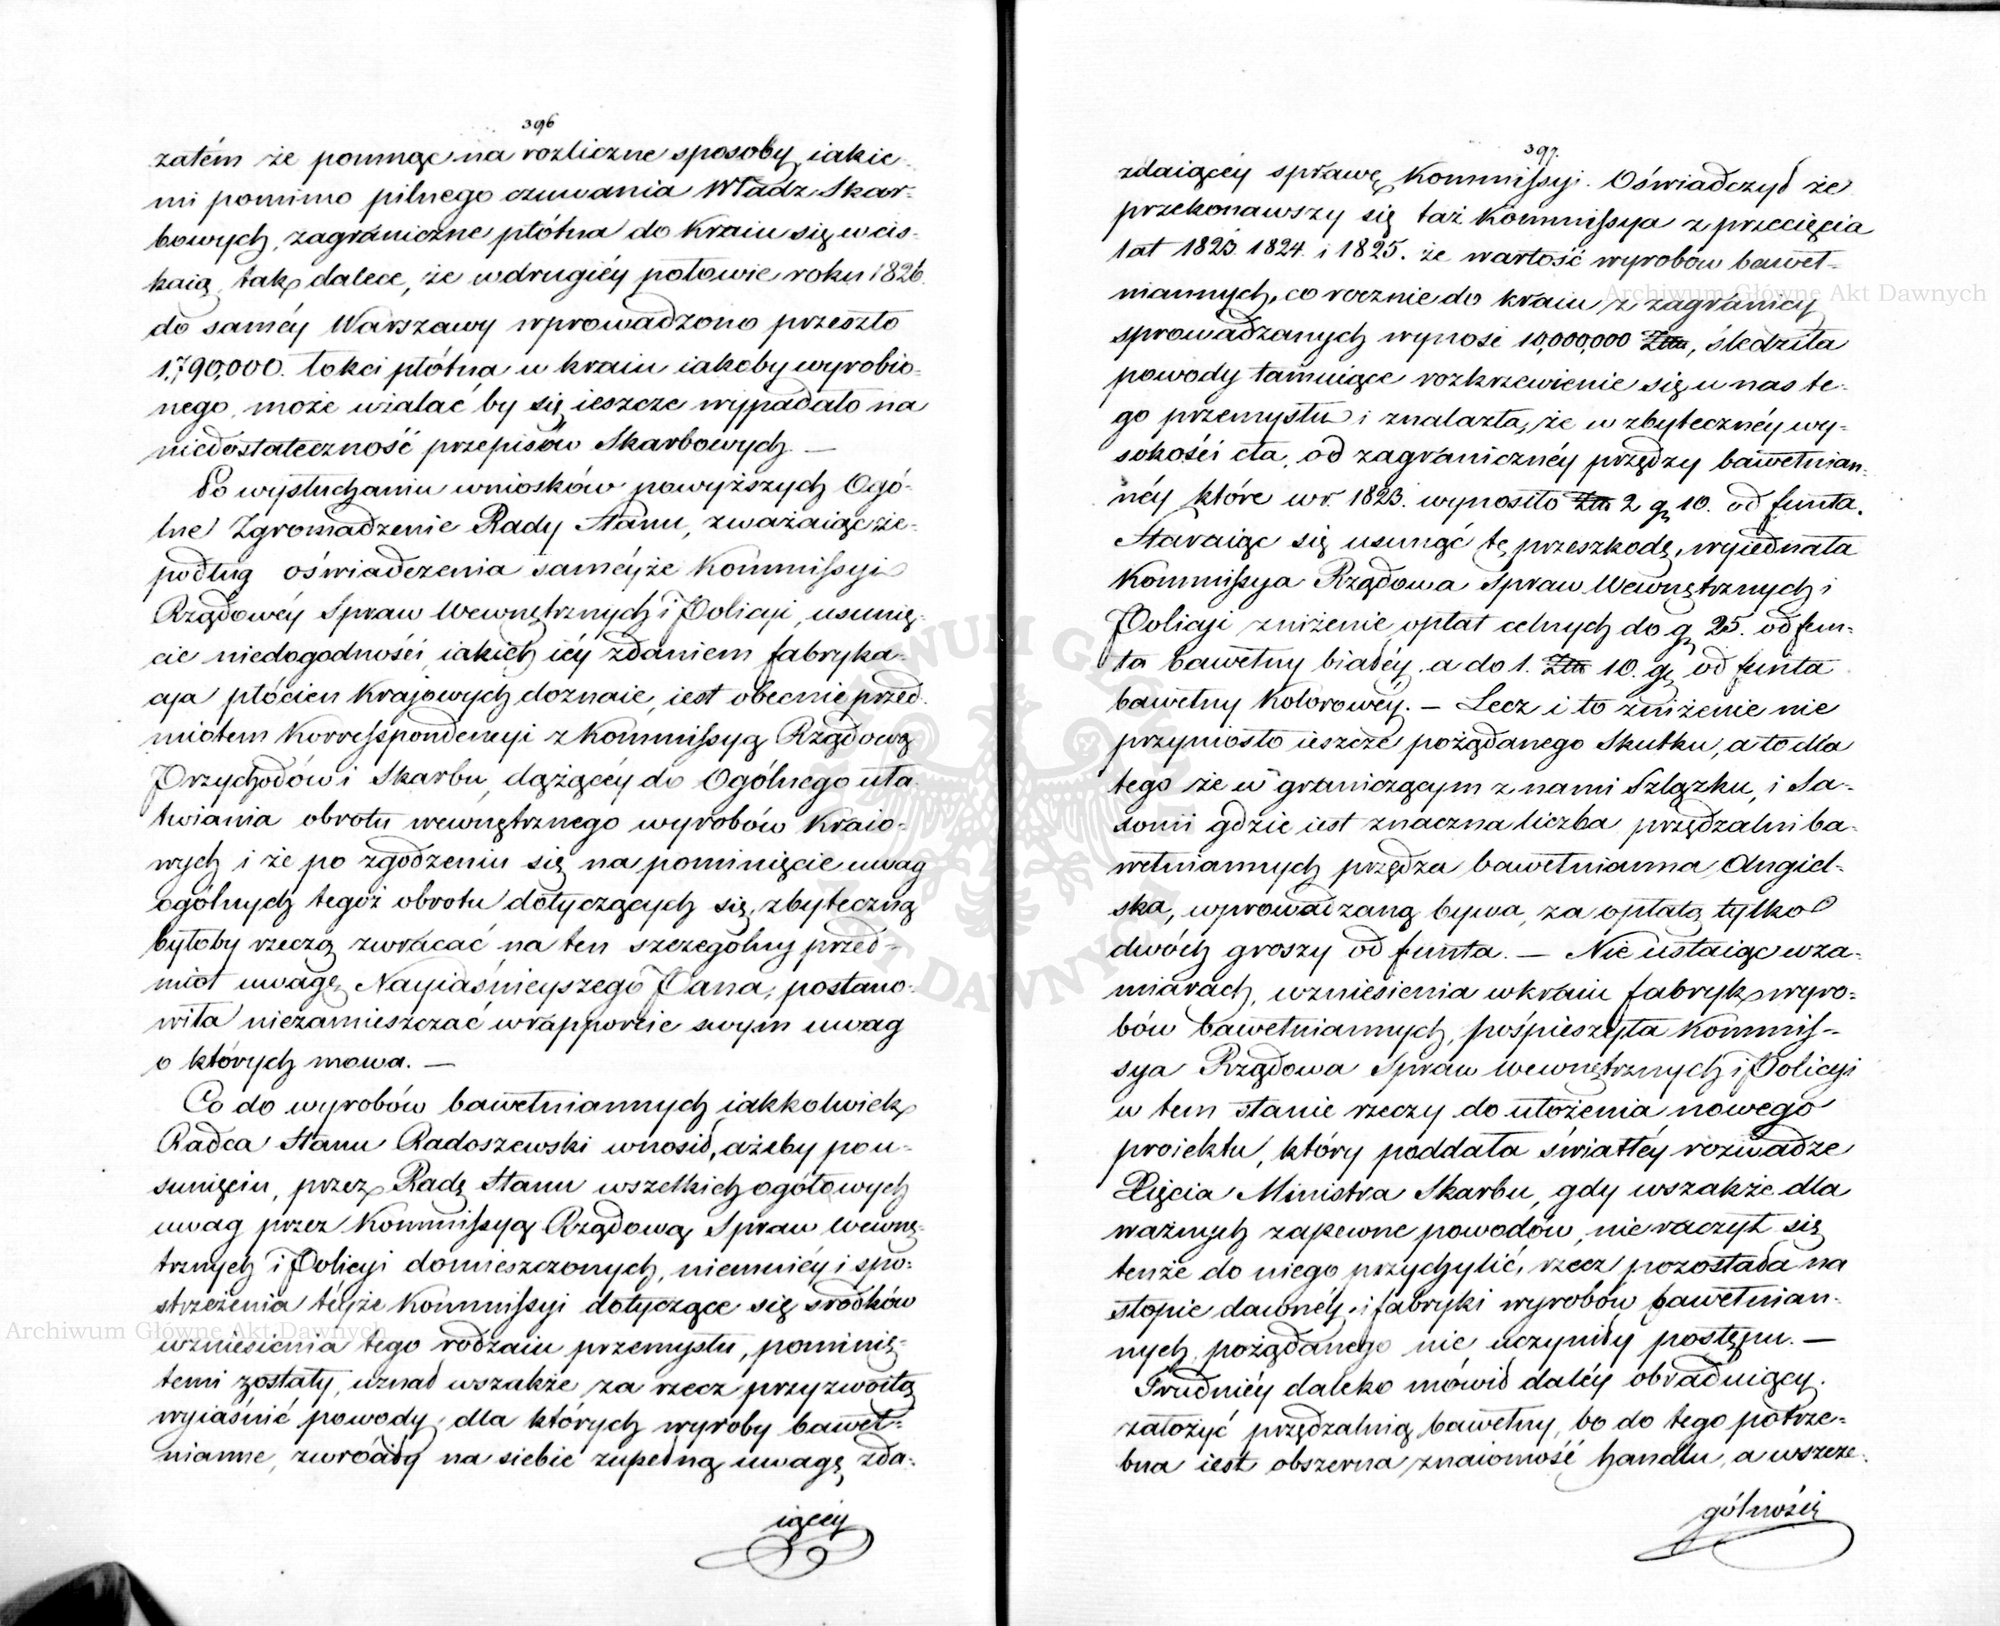 396
zatém że pomnąc na rozliczne sposoby iakie-
mi pomimo pilnego czuwania Władz Skar-
bowych, zagraniczne płótna do Kraiu się wcis-
kaią, tak dalece, że w drugiéy połowie roku 1826.
do saméy Warszawy wprowadzono przeszło
1,790,000. łokci płótna w kraiu iakoby wyrobio-
nego, może użalać by się ieszcze wypadało na
niedostateczność przepisów Skarbowych —
Po wysłuchaniu wniosków powyższych Ogó-
lne Zgromadzenie Rady Stanu, zważaiąc że-
podług oświadczenia saméyże Kommissyi
Rządowéy Spraw Wewnętrznych i Policyi, usunię-
cie niedogodności iakich iéy zdaniem fabryka-
cya płócien Krajowych doznaie, iest obecnie przed-
miotem Korrespondencyi z Kommissyą Rządową
Przychodów i Skarbu, dążącéy do Ogólnego uła-
twiania obrotu wewnętrznego wyrobów Kraio-
wych i że po zgodzeniu się na pominięcie uwag
ogólnych tegoż obrotu dotyczących się, zbyteczną
byłoby rzeczą zwracać na ten szczególny przed-
miot uwagę Nayiaśnieyszego Pana, postano-
wiła niezamieszczać w rapporcie swym uwag
o których mowa. —
Co do wyrobów bawełniannych iakkolwiek
Radca Stanu Radoszewski wnosił, ażeby po u-
sunięciu, przez Radę Stanu wszelkich ogółowych
uwag przez Kommissyą Rządową Spraw Wewnę-
trznych i Policyi domieszczonych, niemniéy i spo-
strzeżenia téyże Kommissyi dotyczące się środków
wzniesienia tego rodzaiu przemysłu, pominię-
temi zostały, uznał wszakże za rzecz przyzwoitą
wyiaśnić powody, dla których wyroby baweł-
nianne, zwróciły na siebie zupełną uwagę zda-
iącéy
397.
zdaiącéy sprawę Kommissyi. Oświadczył że
przekonawszy się taż Kommissya z przecięcia
lat 1823. 1824. i 1825. że wartość wyrobów baweł-
niannych, co rocznie do kraiu z zagranicy
sprowadzanych wynosi 10,000,000 Złłu, śledziła
powody tamuiące rozkrzewienie się u nas te-
go przemysłu i znalazła, że w zbyteczney wy-
sokości cła, od zagranicznéy przędzy bawełnian-
néy które w r. 1823. wynosiło Złłu 2 gr 10. od funta.
Staraiąc się usunąć tę przeszkodę, wyiednała
Kommissya Rządowa Spraw Wewnętrznych i
Policyi zniżenie opłat celnych do gr 25. od fun-
ta bawełny białéy a do 1. Złłu 10. gr od funta
bawełny Kolorowéy. — Lecz i to zniżenie nie
przyniosło ieszcze pożądanego Skutku, a to dla
tego że w graniczącym z nami Szląsku, i Sa-
xonii gdzie iest znaczna liczba przędzalni ba-
wełniannych przędza bawełnianna Angiel-
ska, wprowadzaną bywa, za opłatą tylko
dwóch groszy od funta. — Nie ustaiąc w za-
miarach, wzniesienia w kraiu fabryk wyro-
bów bawełniannych, pośpieszyła Kommis-
sya Rządowa Spraw Wewnętrznych i Policyi
w tem stanie rzeczy do ułożenia nowego
proiektu, który poddała światłéy rozwadze
Xięcia Ministra Skarbu, gdy wszakże dla
ważnych zapewne powodów, nie raczył się
tenże do niego przychylić, rzecz pozostała na
stopie dawnéy, i fabryki wyrobów bawełnian-
nych pożądanego nie uczyniły postępu. —
Trudniéy daleko mówił daléy obraduiący.
założyć przędzalnią bawełny, bo do tego potrze-
bna iest obszerna znaiomość handlu, a wszcze-
gólności
Archiwum Główne Akt Dawnych
Archiwum Główne Akt Dawnych
ARCHIWUM GŁÓWNE AKT DAWNYCH